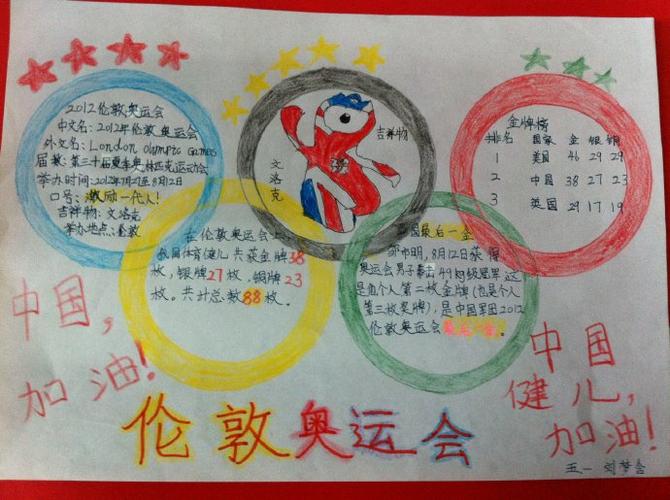 2012伦敦奥运会
中文名：2012年伦敦奥运会
外文名：London olympic Games
届数：第三十届夏季奥林匹克运动会
举办时间：2012年7月27至8月12日
口号：激励一代人！
吉祥物：文洛克
举办地点：伦敦
吉祥物
文洛克
金牌榜
排名 国家 金 银 铜
1 美国 46 29 29
2 中国 38 27 23
3 英国 29 17 19
在伦敦奥运会上
我国体育健儿共获金牌38
枚，银牌27枚，铜牌23
枚。共计总数88枚。
国最后一金
邹市明，8月12日获得
奥运会男子拳击49公斤级冠军这
是他个人第二枚金牌（也是个人
第三枚奖牌），是中国军团2012
伦敦奥运会最后一金。
中国，
加油！
中国
健儿，
加油！
伦敦奥运会
五一 刘梦含